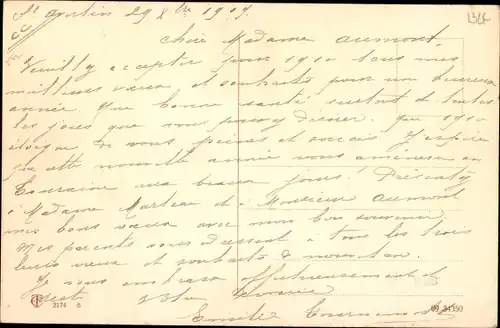 St Avertin 29 Xbre 1909.
1315
Chère Madame Aumont,
Veuillez accepter pour 1910 tous mes
meilleurs vœux et souhaits pour une heureuse
année. Que bonne santé surtout et toutes
les joies que vous pouvez désirer. que 1910
éloigne de vous peines et soucis. J'espère
que cette nouvelle année vous amènera en
Touraine aux beaux jours! Présentez
à Madame Marteau et à Monsieur Aumont
mes bons vœux avec mon bon souvenir
Mes parents vous adressent à tous les trois
leurs vœux et souhaits de nouvel an.
Je vous embrasse affectueusement et
reste votre
Emilie
2174 6
09 34350